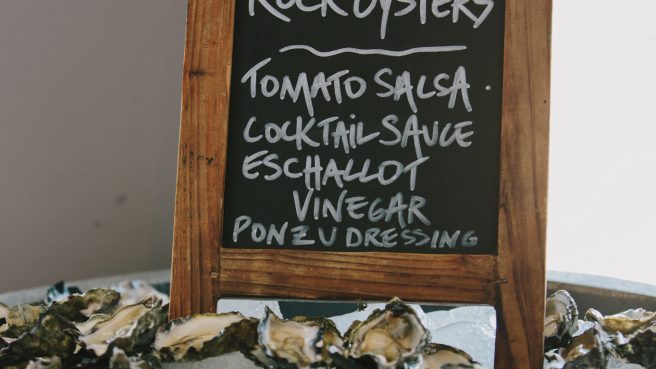 ROCK OYSTERS
TOMATO SALSA.
COCKTAIL SAUCE
ESCHALLOT
VINEGAR
PONZU DRESSING